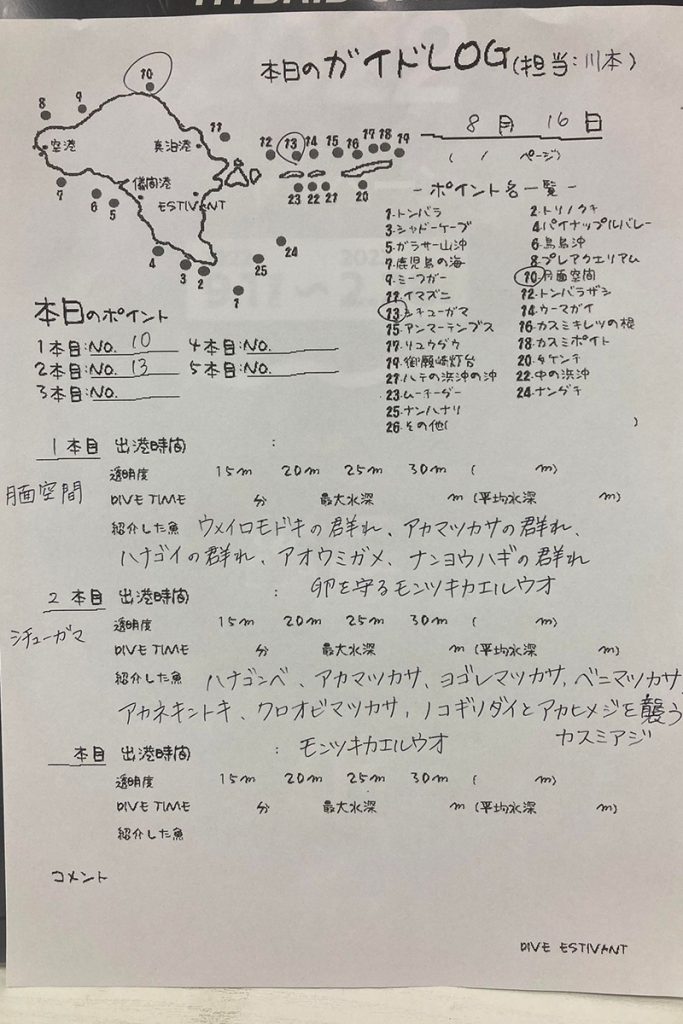 本日のガイドLOG(担当:川本)
8月 16日
( / ページ)
10
8 9
空港
真泊港
11
12 13 14 15 16 17 18 19
7 6 5
儀間港
ESTIVANT
23 22 21 20
24
4 3 2
25
1
-ポイント名一覧-
1.トンバラ 2.トリノクチ
3.シャドーケーブ 4.パイナップルバレー
5.ガラサー山沖 6.鳥島沖
7.鹿児島の海 8.プレアクエリアム
9.ミーフガー 10.月面空間
11.イマズニ 12.トンバラザシ
13.シチューガマ 14.ウーマガイ
15.アンマーテンプス 16.カスミキレツの根
17.リュウダウ 18.カスミポイト
19.御願崎灯台 20.タケンチ
21.ハテの浜沖の沖 22.中の浜沖
23.ムーチーダー 24.ナングチ
25.ナンハナリ
26.その他( )
本日のポイント
1本目:NO. 10 4本目:NO.
2本目:NO. 13 5本目:NO.
3本目:NO.
1本目 出港時間 :
透明度 15m 20m 25m 30m ( m)
月面空間
DIVE TIME 分 最大水深 m (平均水深 m)
紹介した魚 ウメイロモドキの群れ、アカマツカサの群れ、
ハナゴイの群れ、アオウミガメ、ナンヨウハギの群れ
卵を守るモンツキカエルウオ
2本目 出港時間 :
透明度 15m 20m 25m 30m ( m)
シチューガマ
DIVE TIME 分 最大水深 m (平均水深 m)
紹介した魚 ハナゴンベ、アカマツカサ、ヨゴレマツカサ、ベニマツカサ
アカネキントキ、クロオビマツカサ、ノコギリダイとアカヒメジを襲う
カスミアジ
モンツキカエルウオ
本目 出港時間 :
透明度 15m 20m 25m 30m ( m)
DIVE TIME 分 最大水深 m (平均水深 m)
紹介した魚
コメント
DIVE ESTIVANT